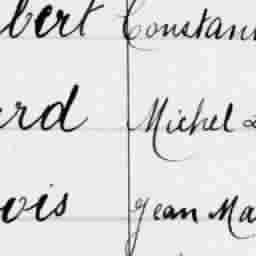 bert Constant
ard Michel
ois Jean Ma